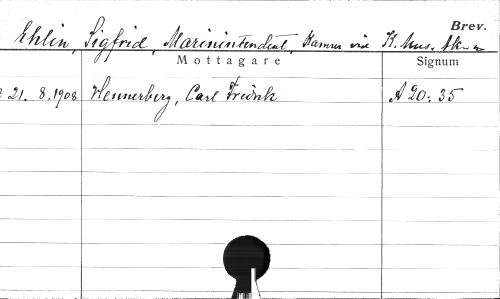 Brev.
Ehlin, Sigfrid, Marinintendent, Kamrer vid K. Mus. Ak.
Mottagare Signum
21. 8. 1908 Hennerberg, Carl Fredrik A 20: 35